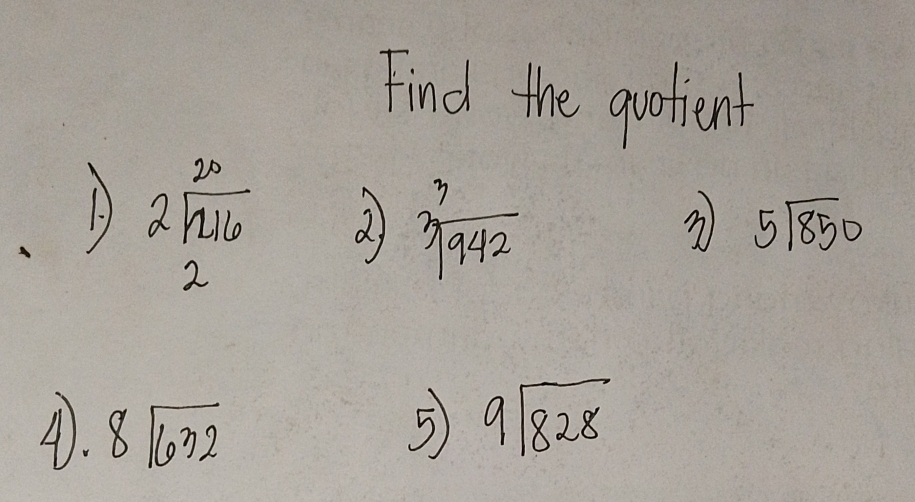 Find the quotient
20
1.) 2 216
2
3
2) 3 942
3) 5 850
4). 8 632
5) 9 828